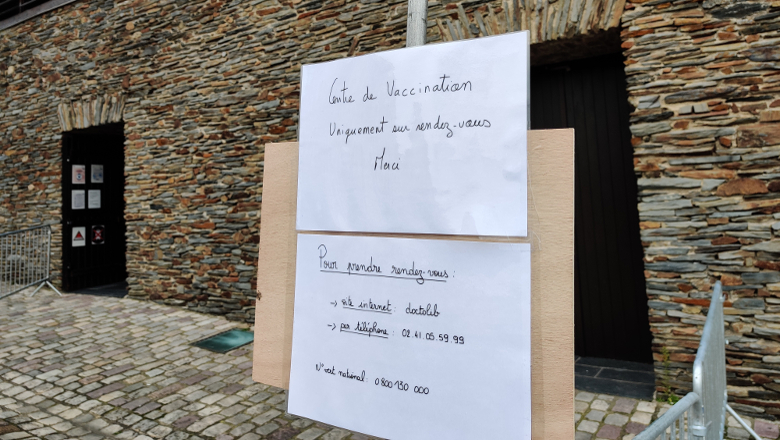 Centre de Vaccination
Uniquement sur rendez-vous
Merci
Pour prendre rendez-vous :
→ site internet : doctolib
→ par téléphone : 02.41.05.59.99
N° vert national : 0 800 130 000